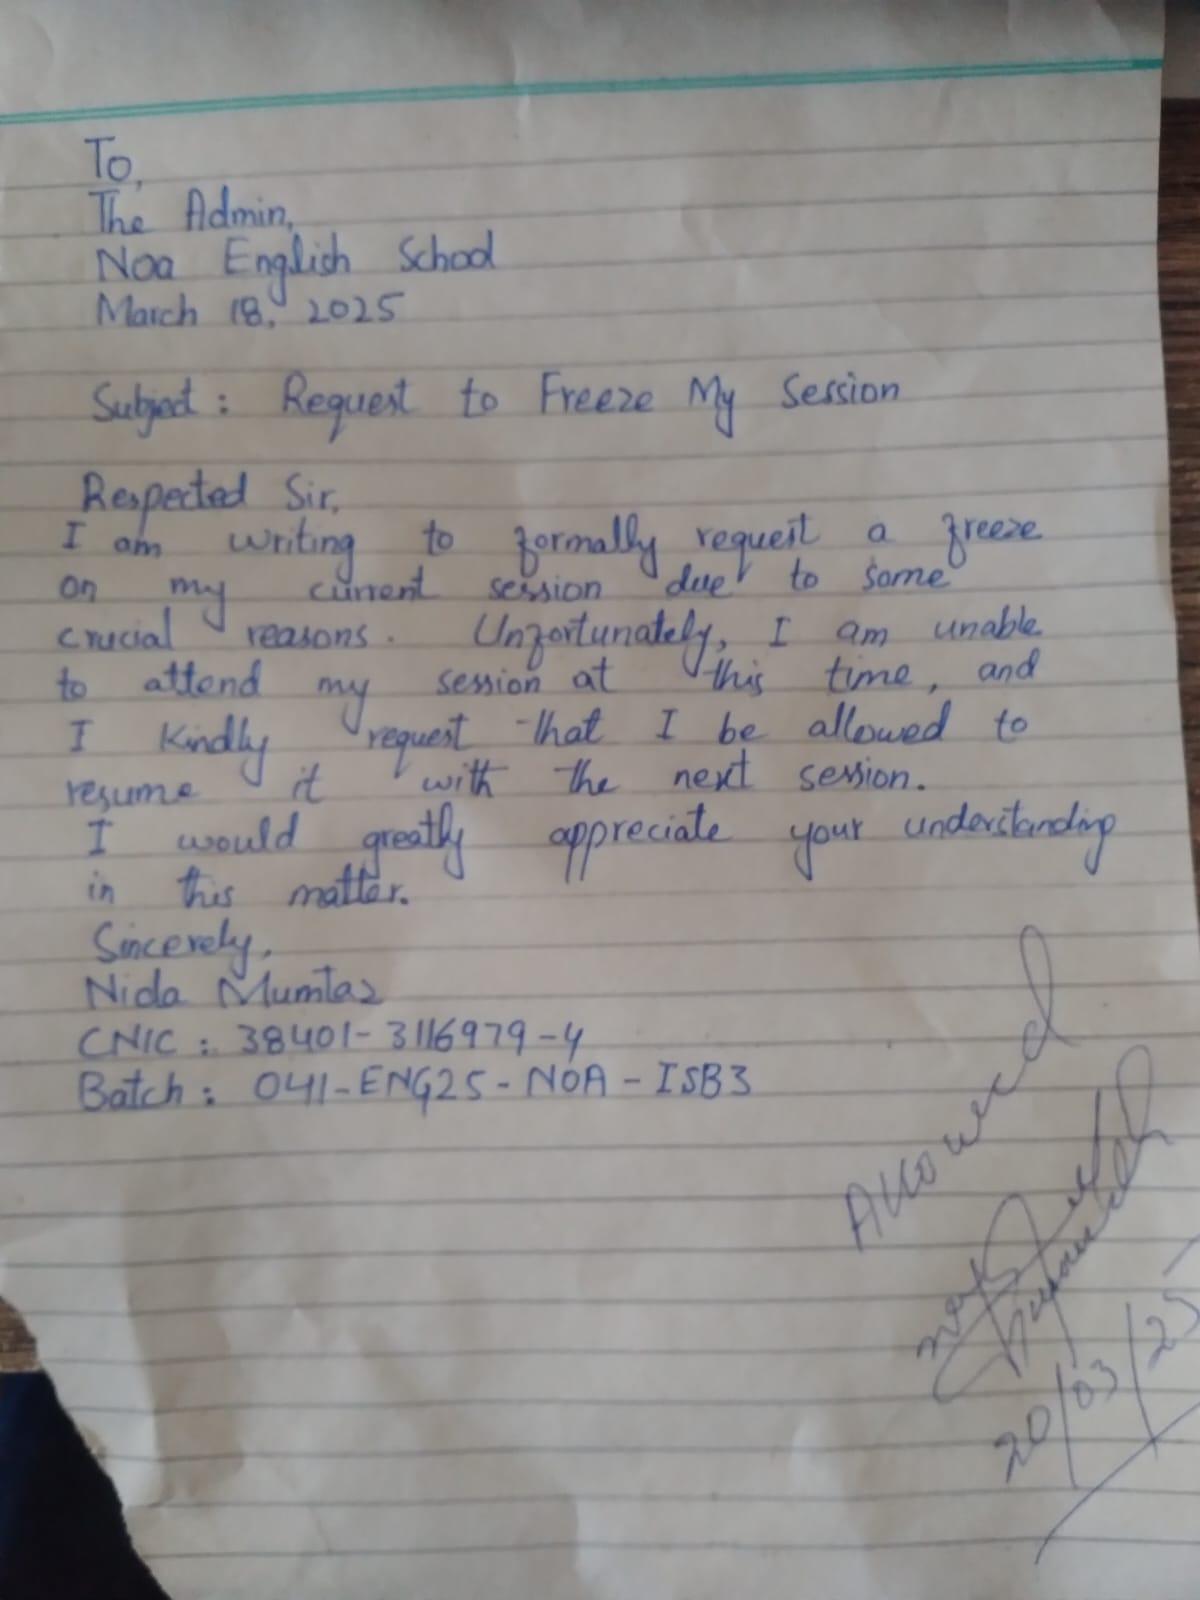 To,
The Admin,
Noa English School
March 18, 2025
Subject : Request to Freeze My Session
Respected Sir,
I am writing to formally request a freeze
on my current session due to some
crucial reasons. Unfortunately, I am unable
to attend my session at this time, and
I Kindly request that I be allowed to
resume it with the next session.
I would greatly appreciate your understanding
in this matter.
Sincerely,
Nida Mumtaz
CNIC : 38401-3116979-4
Batch : 041-ENG25-NOA-ISB3
Allowed
20/03/25